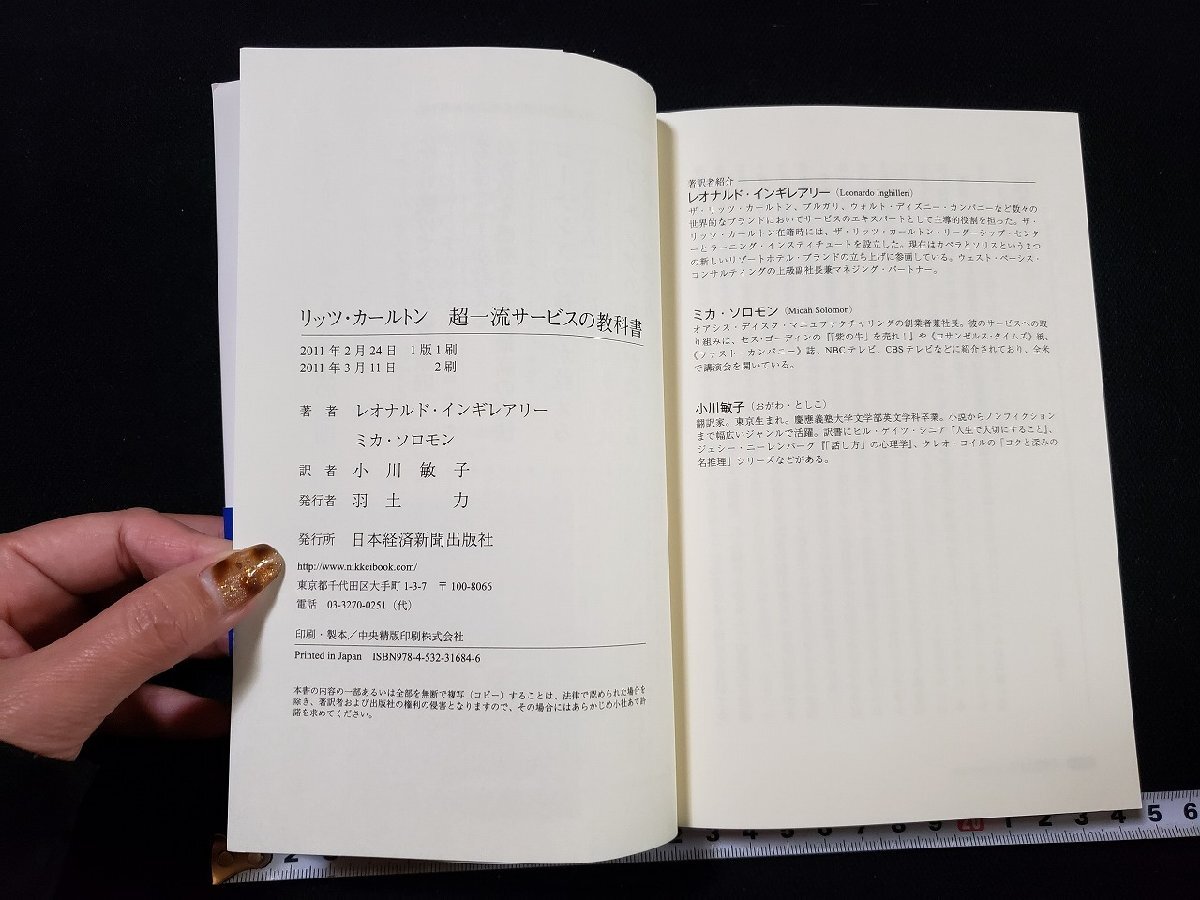 リッツ・カールトン 超一流サービスの教科書
2011年2月24日 1版1刷
2011年3月11日 2刷
著者 レオナルド・インギレアリー
ミカ・ソロモン
訳者 小川敏子
発行者 羽土 力
発行所 日本経済新聞出版社
http://www.nikkeibook.com/
東京都千代田区大手町1-3-7 〒100-8065
電話 03-3270-0251（代）
印刷・製本／中央精版印刷株式会社
Printed in Japan ISBN978-4-532-31684-6
本書の内容の一部あるいは全部を無断で複写（コピー）することは、法律で認められた場合を
除き、著訳者および出版社の権利の侵害となりますので、その場合にはあらかじめ小社あて許
諾を求めてください。
著訳者紹介
レオナルド・インギレアリー（Leonardo Inghilleri）
ザ・リッツ・カールトン、ブルガリ、ウォルト・ディズニー・カンパニーなど数々の
世界的なブランドにおいてサービスのエキスパートとして主導的役割を担った。ザ・
リッツ・カールトン在籍時には、ザ・リッツ・カールトン・リーダーシップ・センタ
ーとラーニング・インスティチュートを設立した。現在はカペラとソリスという2つ
の新しいリゾートホテル・ブランドの立ち上げに参画している。ウェスト・ペーシス・
コンサルティングの上級副社長兼マネジング・パートナー。
ミカ・ソロモン（Micah Solomon）
オアシス・ディスク・マニュファクチャリングの創業者兼社長。彼のサービスへの取
り組みは、セス・ゴーディンの『「紫の牛」を売れ！』や《ロサンゼルス・タイムズ》紙、
《ファスト・カンパニー》誌、NBCテレビ、CBSテレビなどに紹介されており、全米
で講演会を開いている。
小川敏子（おがわ・としこ）
翻訳家。東京生まれ。慶應義塾大学文学部英文学科卒業。小説からノンフィクション
まで幅広いジャンルで活躍。訳書にビル・ゲイツ・シニア『人生で大切にすること』、
ジェシー・ニーレンバーグ『「話し方」の心理学』、クレオ・コイルの「コクと深みの
名推理」シリーズなどがある。
2 3 4 5 6 7 8 9 20 1 2 3 4 5 6